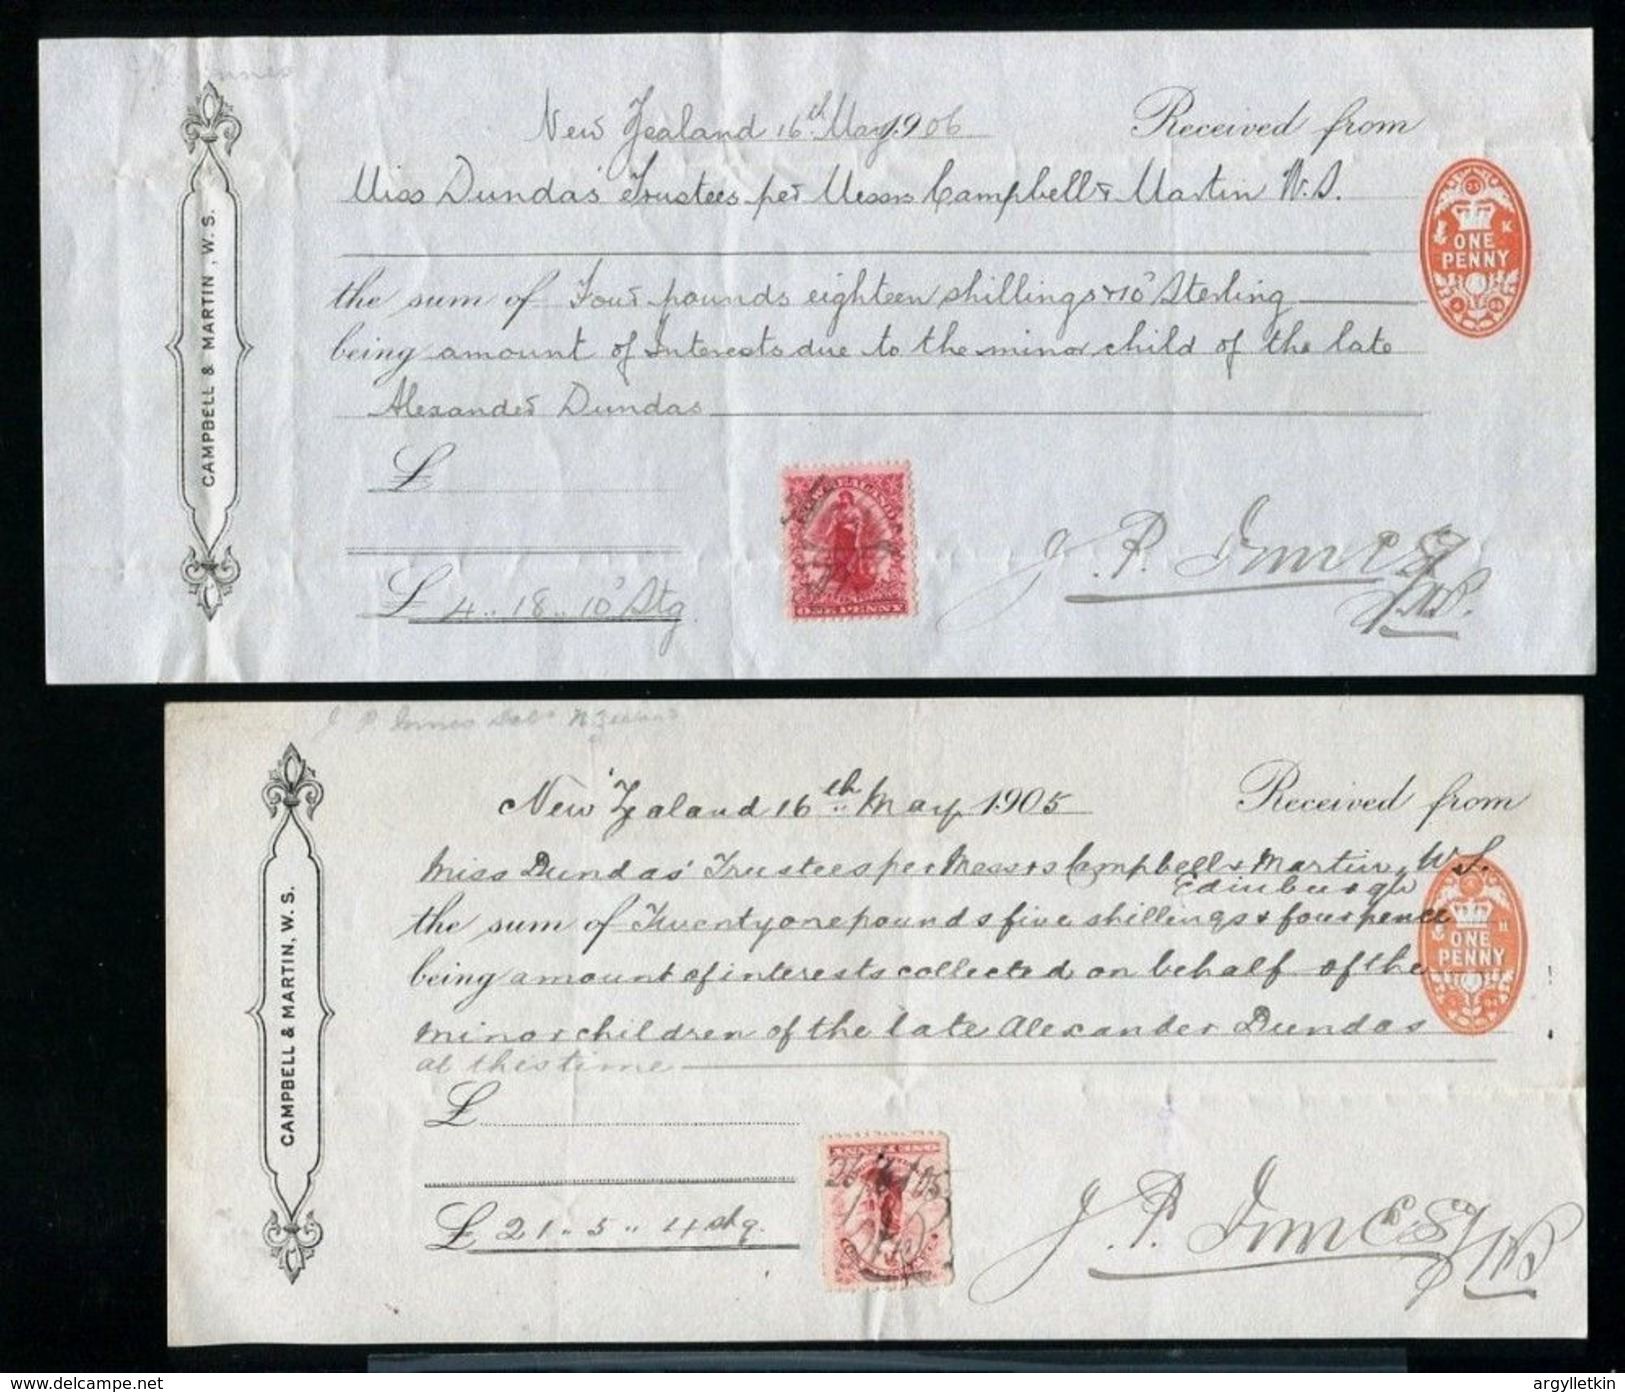 CAMPBELL & MARTIN, W.S.
New Zealand 16th May 1906 Received from
Miss Dundas' Trustees per Messrs Campbell & Martin W.S.
the sum of Four pounds eighteen shillings & 10d Sterling
being amount of Interests due to the minor child of the late
Alexander Dundas
£
£ 4..18..10d Stg
ONE PENNY
J. P. Innes
K
ONE
PENNY
J P Innes
New Zealand 16th May 1905 Received from
Miss Dundas' Trustees per Messrs Campbell & Martin, W.S.
Edinburgh
the sum of Twenty one pounds five shillings & four pence
being amount of interests collected on behalf of the
minor children of the late Alexander Dundas
at this time
£
£ 21..5..4 stg.
CAMPBELL & MARTIN, W.S.
J. P. Innes
ONE
PENNY
delcampe.net
argylletkin